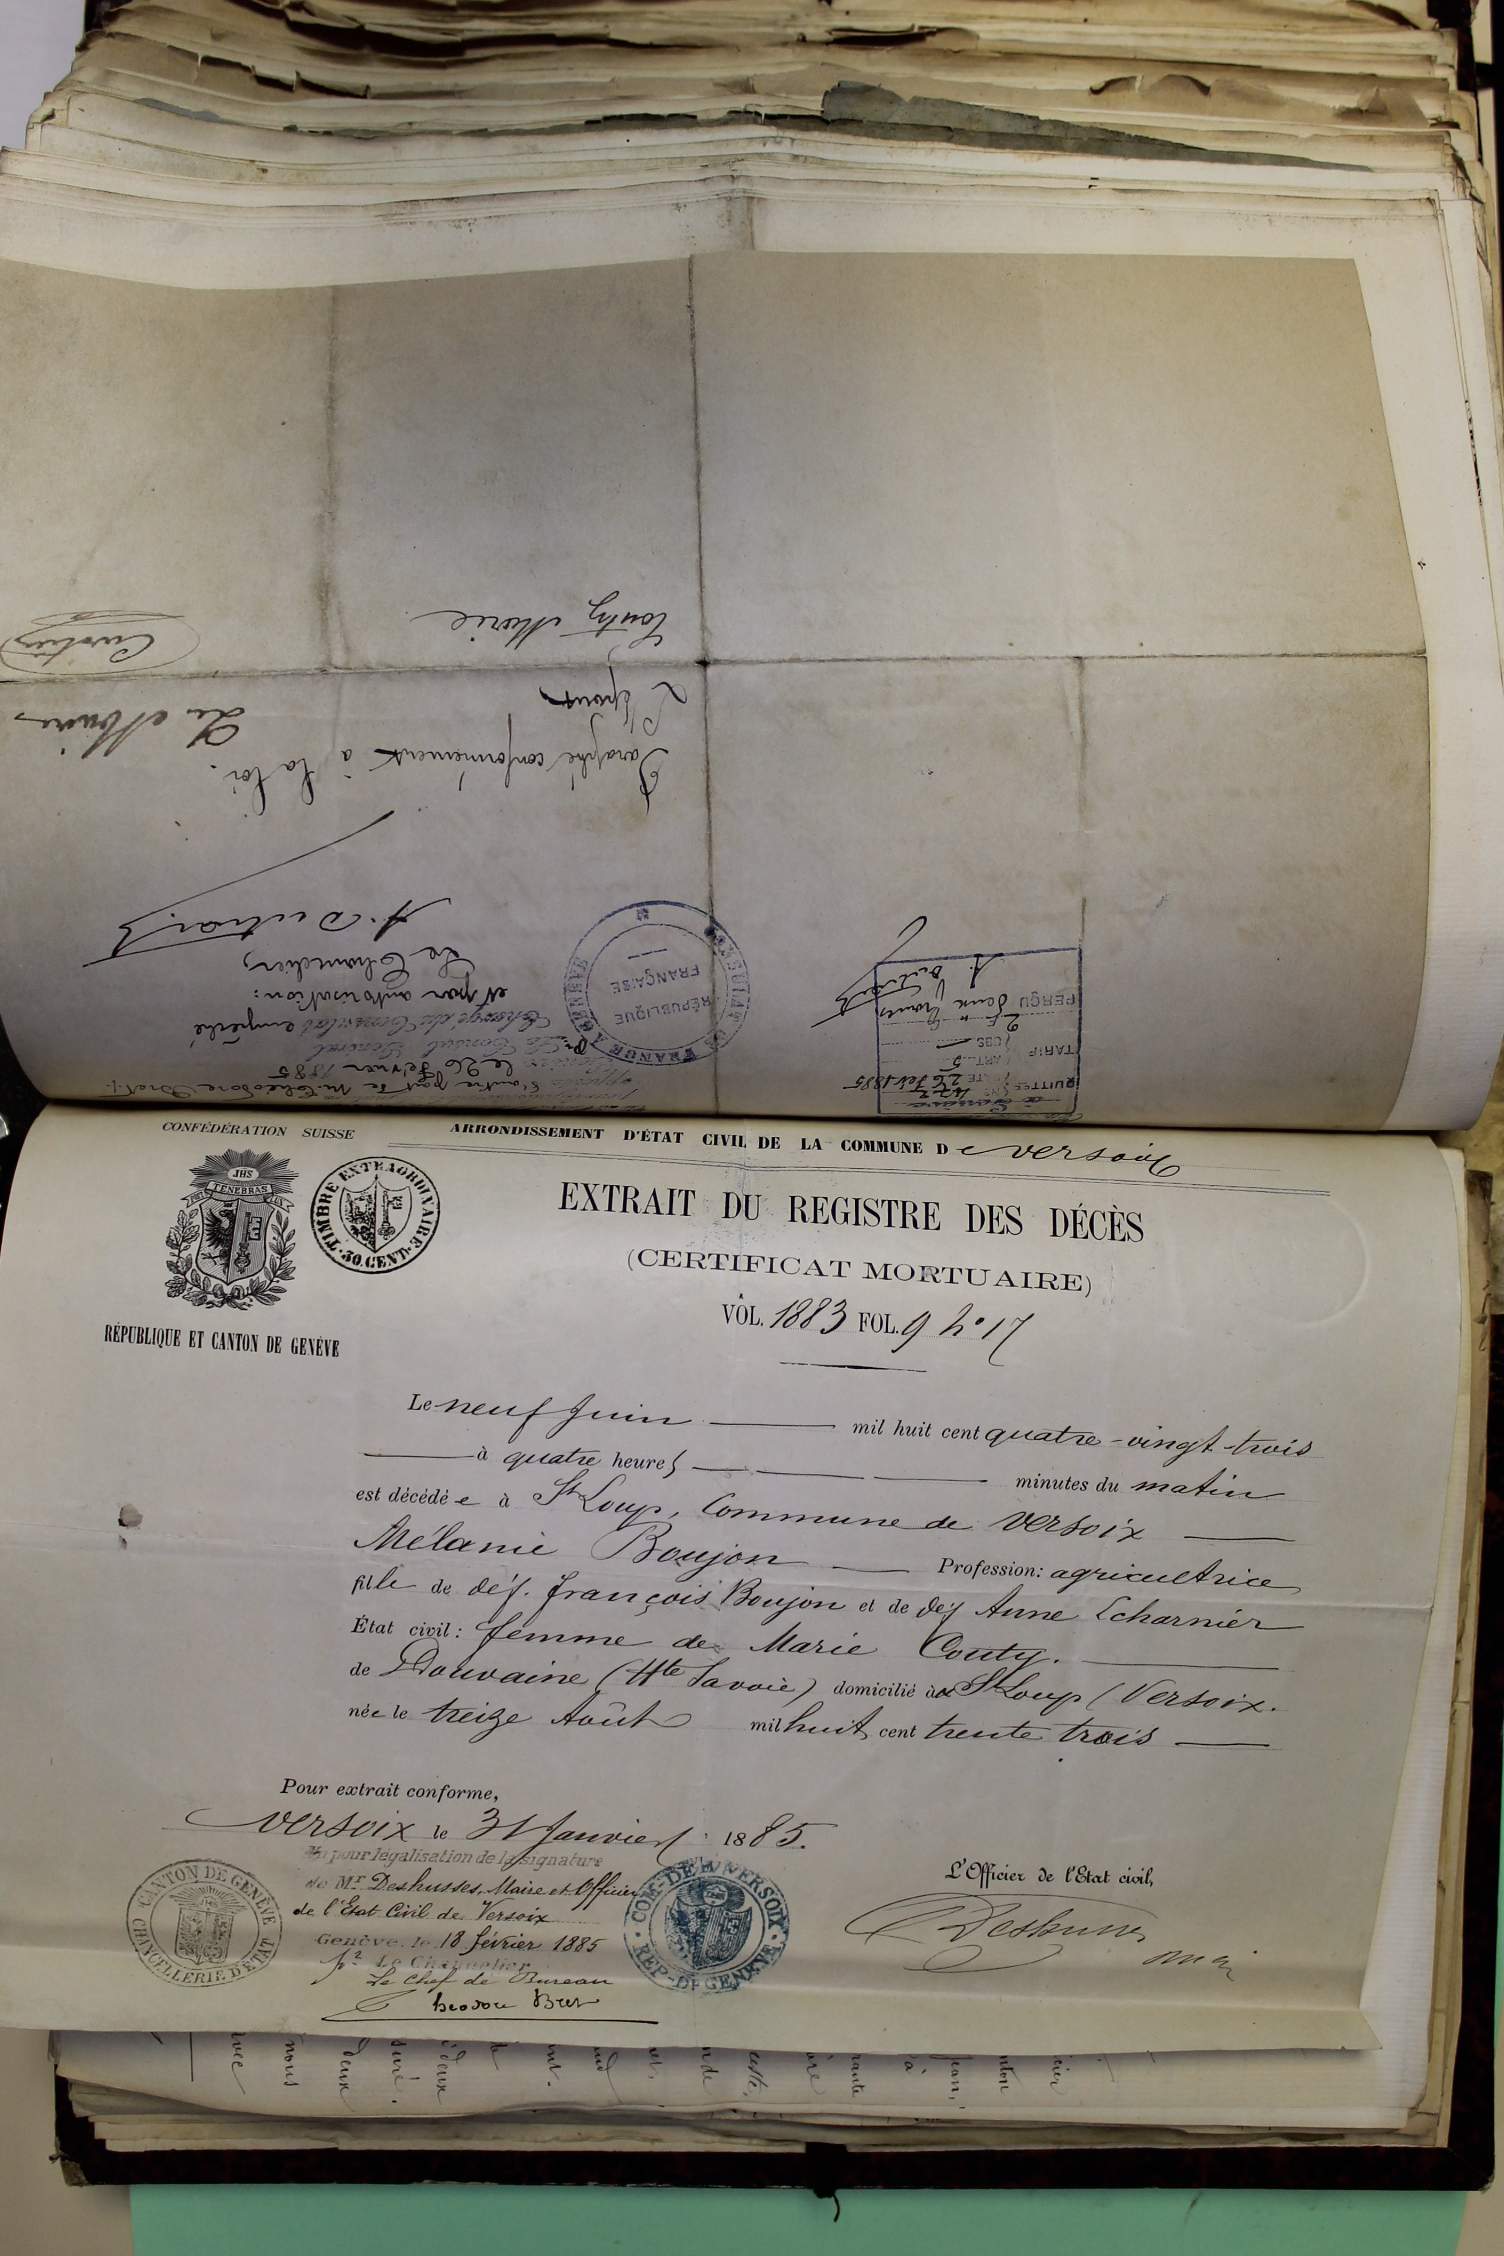 CONFÉDÉRATION SUISSE
ARRONDISSEMENT D'ÉTAT CIVIL DE LA COMMUNE De Versoix
JHS
POST TENEBRAS LUX
TIMBRE EXTRAORDINAIRE
30 CENT.
RÉPUBLIQUE ET CANTON DE GENÈVE
EXTRAIT DU REGISTRE DES DÉCÈS
(CERTIFICAT MORTUAIRE)
VOL. 1883 FOL. 9 No 17
Le neuf Juin mil huit cent quatre-vingt-trois
à quatre heures minutes du matin
est décédée à St Loup, Commune de Versoix
Mélanie Boujon Profession: agricultrice
fille de déf. François Boujon et de déf Anne Echarnier
État civil: femme de Marie Couty.
de Douvaine (Hte Savoie) domicilié à St Loup (Versoix.
née le treize Août mil huit cent trente trois
Pour extrait conforme,
Versoix le 31 Janvier 1885.
Vu pour légalisation de la signature
de Mr Deshusses, Maire et Officier
de l'État Civil de Versoix
Genève, le 18 février 1885
pr Le Chancelier
Le Chef de Bureau
Theodore Bret
CANTON DE GENÈVE
CHANCELLERIE D'ÉTAT
COM. DE VERSOIX
REP. DE GENÈVE
L'Officier de l'Etat civil,
Deshusses
le 26 février 1885
Pr. Le Consul Général
Chargé du Consulat empêché
et par autorisation:
Le Chancelier,
A. Dutrait
CONSULAT DE FRANCE A GENÈVE
RÉPUBLIQUE
FRANÇAISE
QUITTCE
DATE 26 Fév 1885
TARIF
ART. 5
PERÇU deux francs
Paraphé conformément à la loi.
L'époux
Le Maire
Couty Marie